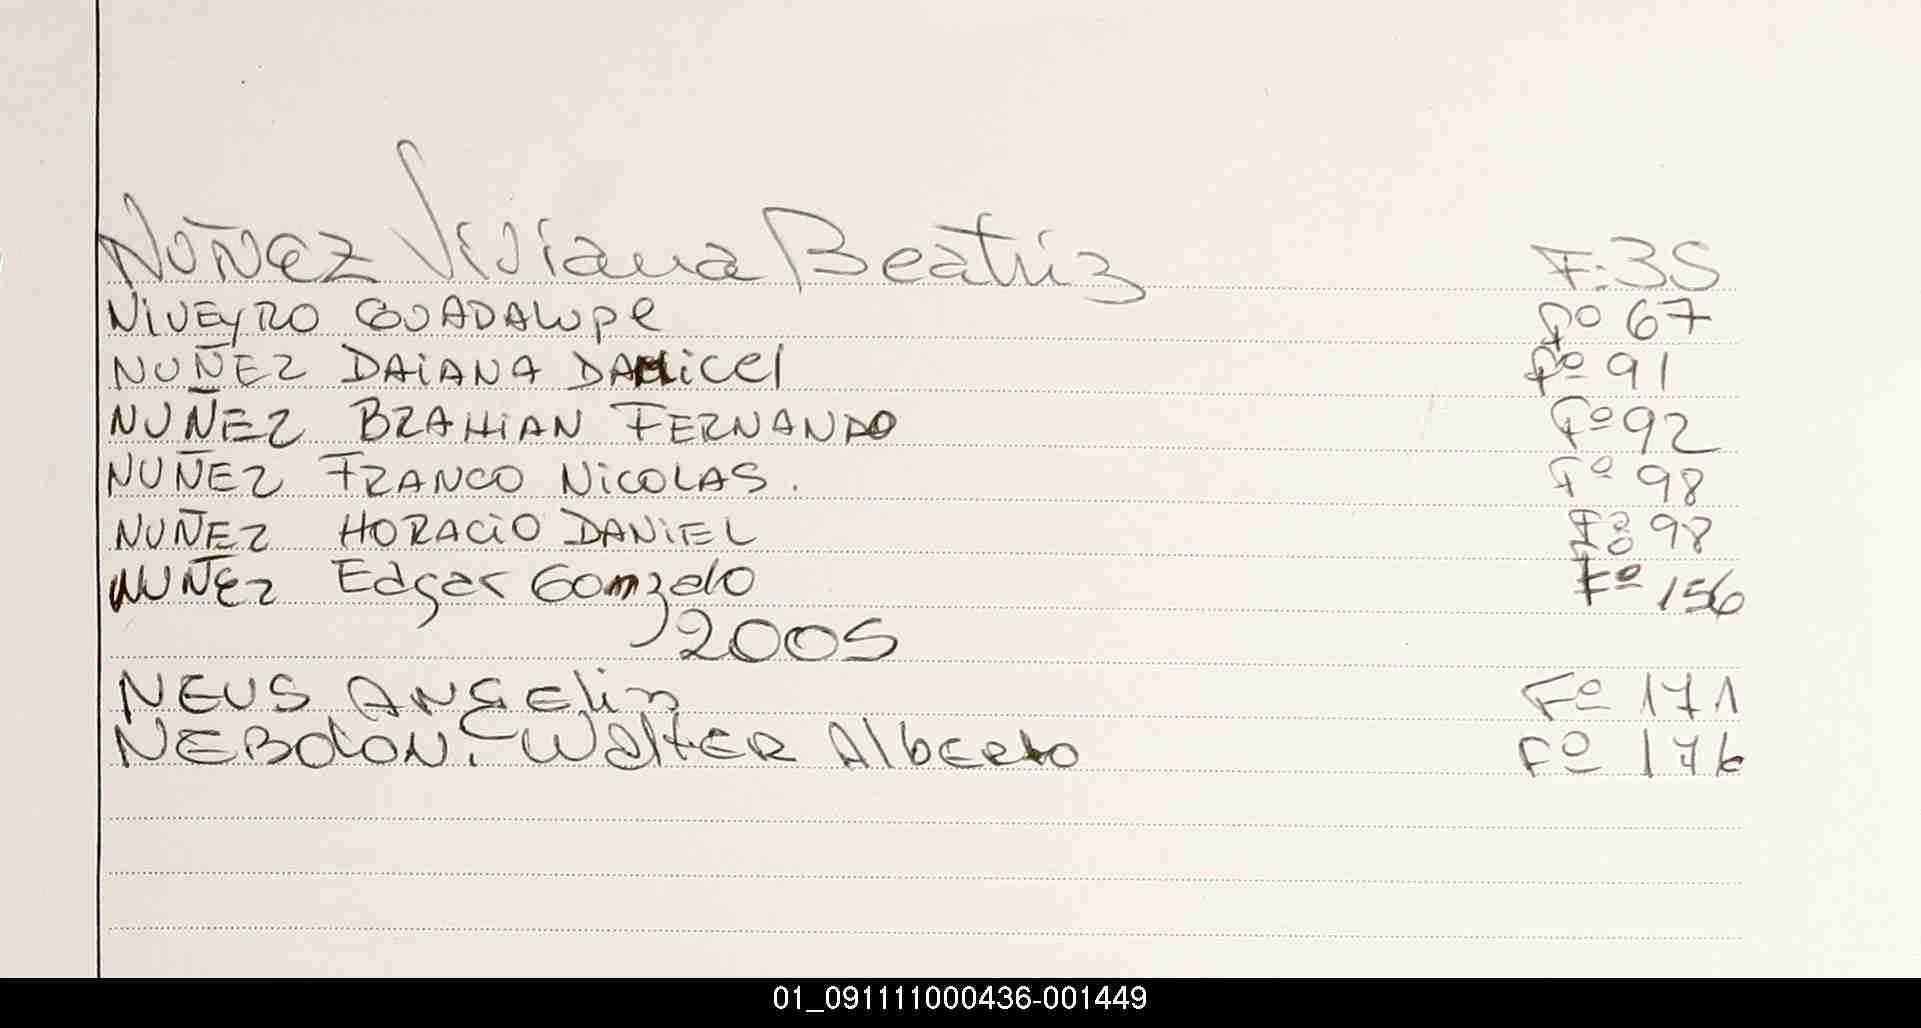 NUÑEZ Viviana Beatriz F: 35
NIVEYRO GUADALUPE Fº 67
NUÑEZ DAIANA DAMICEL Fº 91
NUÑEZ BRAHIAN FERNANDO Fº 92
NUÑEZ FRANCO NICOLAS. Fº 98
NUÑEZ HORACIO DANIEL Fº 98
NUÑEZ Edgar Gonzalo Fº 156
2005
NEUS ANGElin Fº 171
NEBOLON. WalTER AlbERto Fº 176
01_091111000436-001449